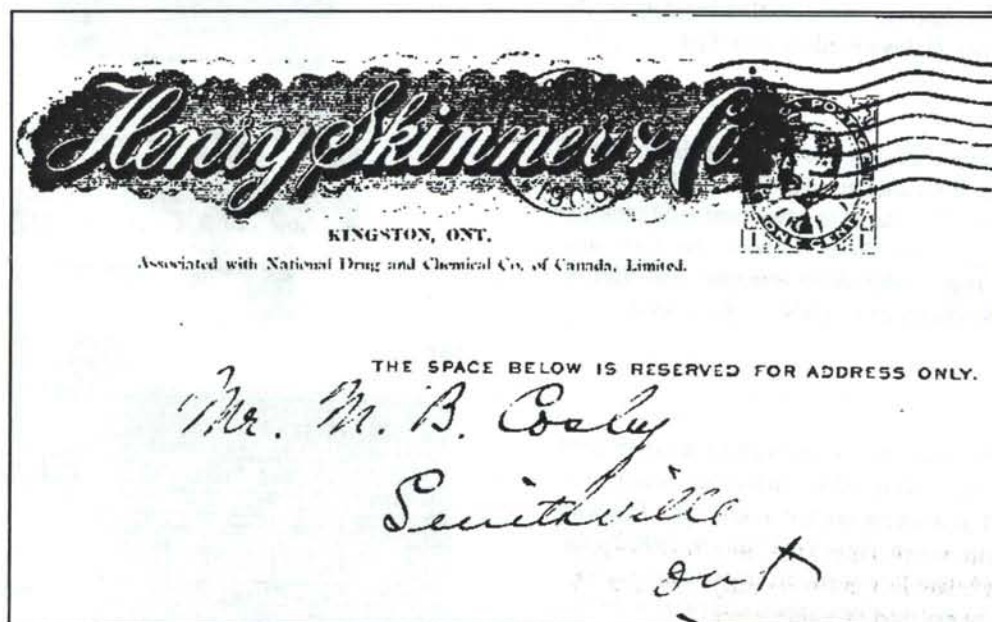 Henry Skinner & Co.
KINGSTON, ONT.
Associated with National Drug and Chemical Co. of Canada, Limited.
THE SPACE BELOW IS RESERVED FOR ADDRESS ONLY.
Mr. M. B. Cosby
Smithville
Ont